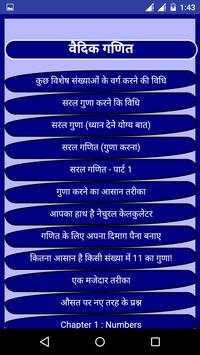 1:43
वैदिक गणित
कुछ विशेष संख्याओं के वर्ग करने की विधि
सरल गुणा करने कि विधि
सरल गुणा (ध्यान देने योग्य बात)
सरल गणित (गुणा करना)
सरल गणित - पार्ट 1
गुणा करने का आसान तरीका
आपका हाथ है नेचुरल केलकुलेटर
गणित के लिए अपना दिमाग पैना बनाए
कितना आसान है किसी संख्या में 11 का गुणा!
एक मजेदार तरीका
औसत पर नए तरह के प्रश्न
Chapter 1 : Numbers